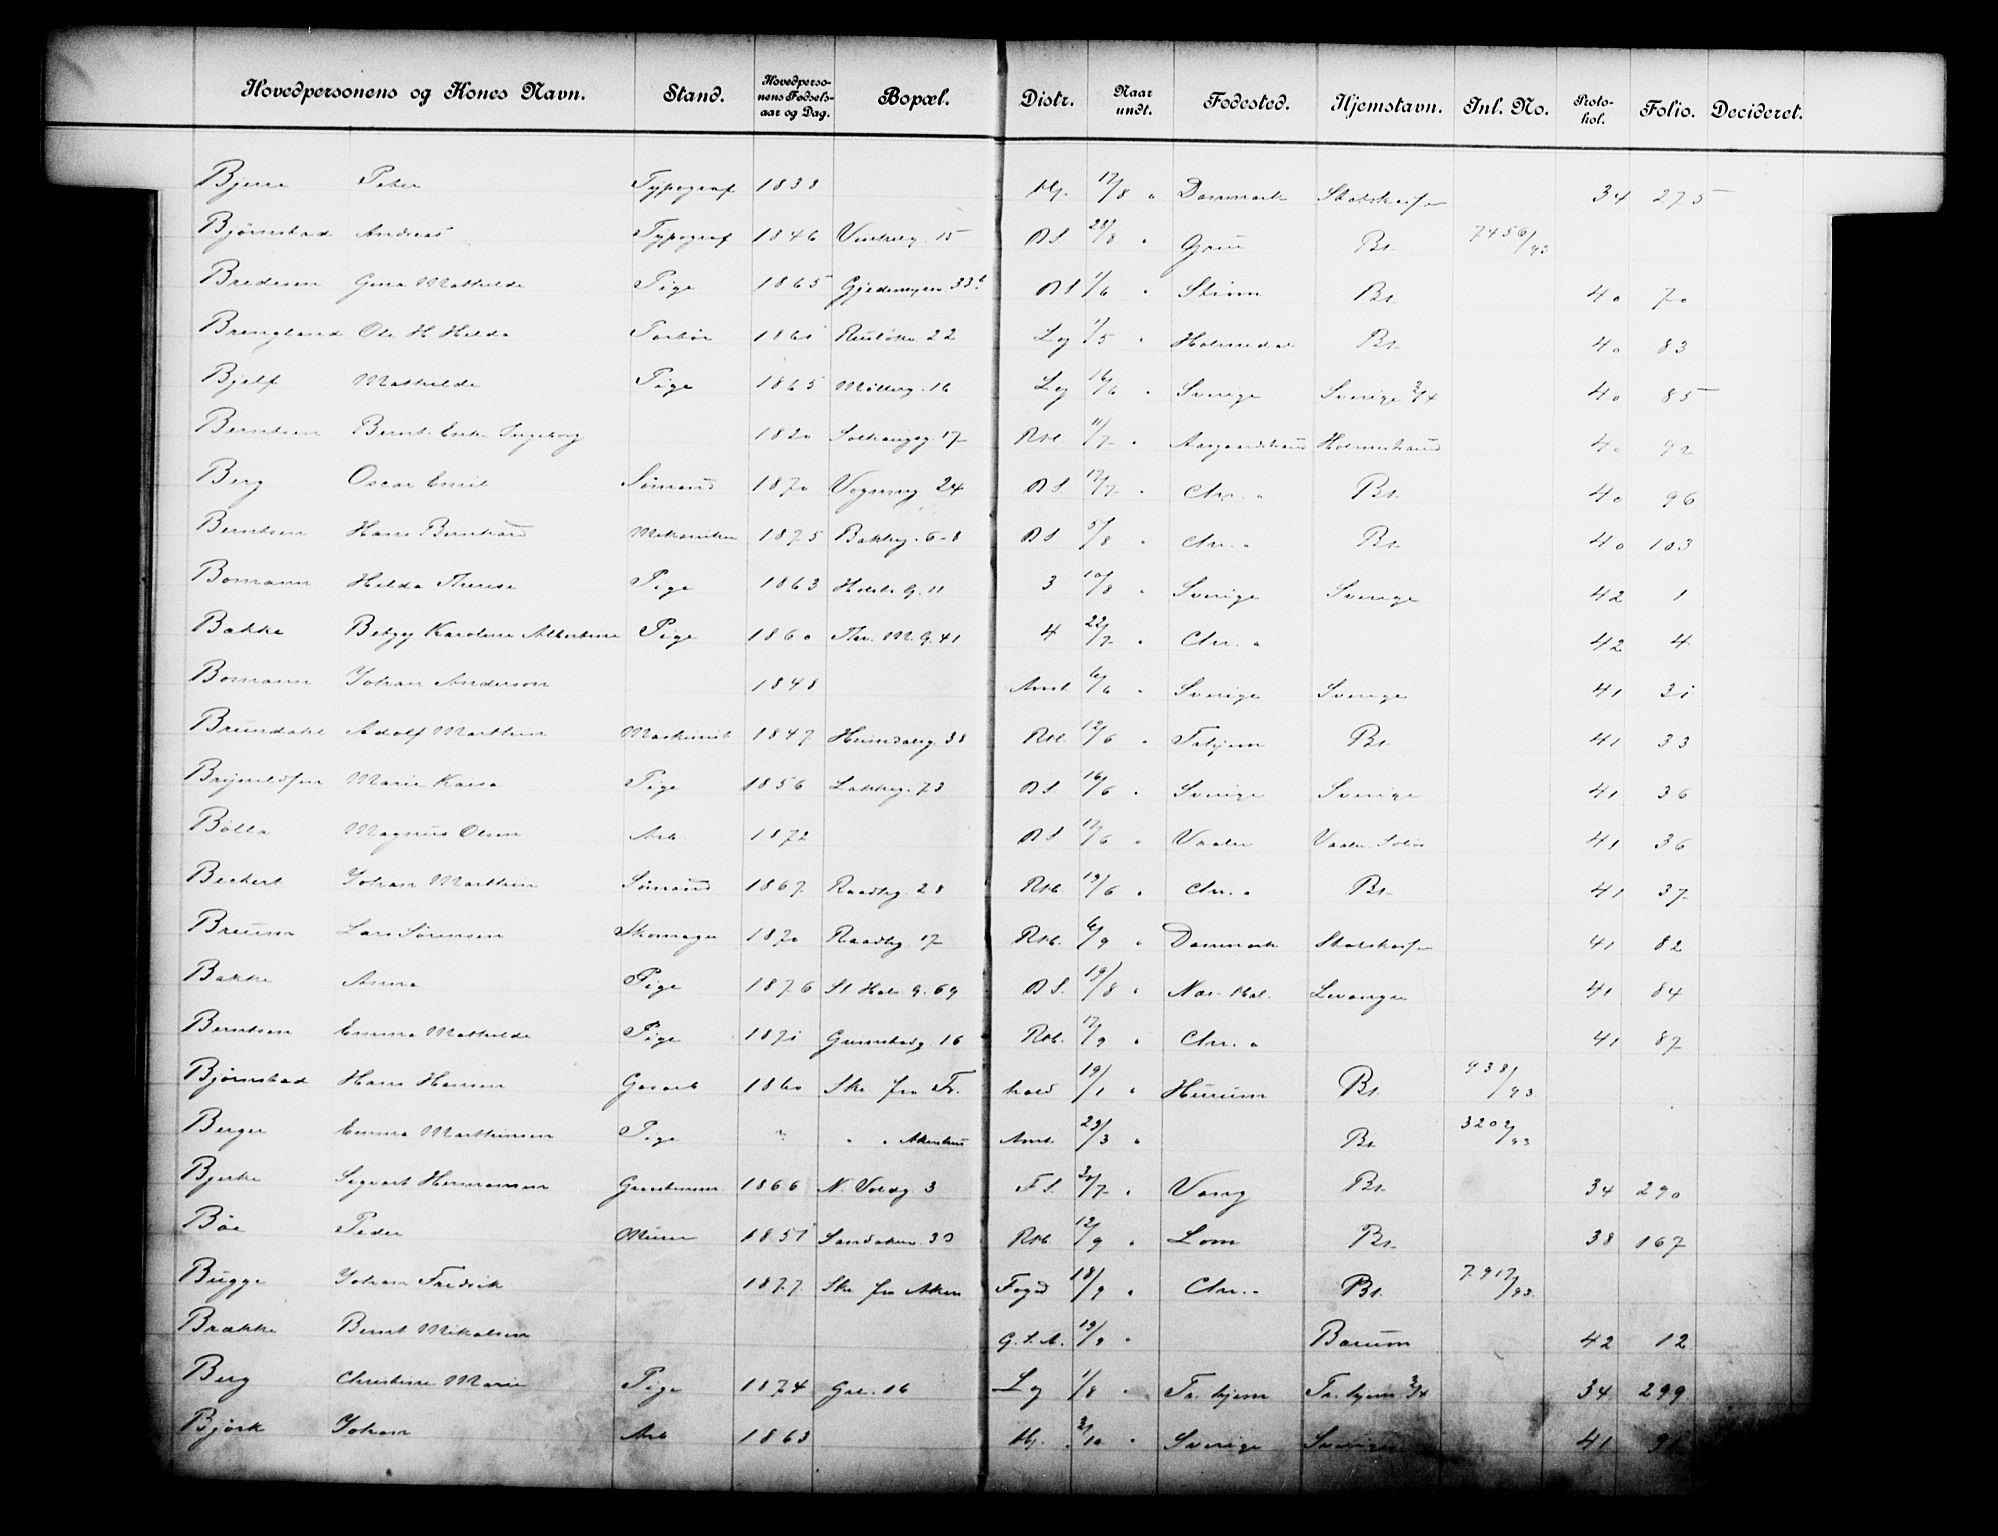 Hovedpersonens og Kones Navn. Stand. Hovedpersonens Fødselsaar og Dag. Bopæl. Distr. Naar undt. Fødested. Hjemstavn. Inl. No. Protokol. Folio. Decideret.
Bjerre Peter Typograf 1838 Hj. 17/8 " Danmark 34 275
Bjørnstad Andreas Typograf 1846 15 BS 28/8 " Grue Bt. 7456/93
Bredesen Gina Mathilde Pige 1865 BS 1/6 " Strøm Bt. 40 70
Ole H Hilda 186 22 Lg 1/5 " Holmedal Bt. 40 83
Bjelf Mathilde Pige 1865 Møllerg. 16 Lg 16/6 " Sverige Sverige 40 85
Berntsen Bernt Enke Ingeborg 1820 17 Rst. 11/7 " Aasgaardstrand Holmestrand 40 92
Berg Oscar Emil Sømand 1870 Vognmg 24 BS 17/7 " Chr.a Bt. 40 96
Berntsen Hans Bernhard Mekaniker 1875 Bakkeg. 6-8 BS 5/8 " Chr.a Bt. 40 103
Bomann Hilda Therese Pige 1863 Holsts G. 11 3 10/8 " Sverige Sverige 42 1
Bakke Betzy Karoline Albertine Pige 1860 Thv. M. G. 41 4 22/7 " Chr.a 42 4
Bomann Johan Anderson 1848 Amt. 6/6 " Sverige Sverige 41 31
Brundahl Adolf Marthin Maskinist 1847 Heimdalsg. 38 Rst. 12/6 " Trhjem Bt. 41 33
Brynildsen Marie Kaisa Pige 1856 Lakkeg. 73 BS 16/6 " Sverige Sverige 41 36
Bølla Magnus Olsen Arb 1872 BS 17/6 " Vaaler Vaaler Solør 41 36
Beckert Johan Marthin Sømand 1867 Raadhg. 28 Rst. 19/6 " Chr.a Bt. 41 37
Bruun Lars Sørensen Skomager 1870 Raadhg 17 Rst. 6/9 " Danmark 41 82
Bakke Anna Pige 1876 St. Hal. G. 69 BS. 19/8 " Levanger 41 84
Berntsen Emma Mathilde Pige 1871 Grønlandsg 16 Rst. 17/9 " Chr.a 41 87
Bjørnstad Hans Hansen Gaardb 1860 Skr. fra Fr. hald 19/1 " Hurum Bt. 938/93
Berger Emma Marthinsen Pige ? " " Akershus Amt 23/3 " Bt 3202/93
Bjerke Sigvart Hermansen 1866 N. Voldg. 3 F.S. 30/7 " Vang Bt. 34 290
Bøe Peder Murer 1851 Sandakerv. 33 Rst 12/9 " Lom Bt. 38 167
Bugge Johan Fredrik 1877 Skr. fra Aker Fogd 18/9 " Chr.a Bt. 7917/93
Brække Bernt Mikalsen G.S.A. 19/9 " Bærum 42 12
Berg Christine Marie Pige 1874 16 Lg 1/8 " Tr.hjem Tr.hjem 34 299
Bjørk Johan Arb 1863 Hj. /10 " Sverige Sverige 41 91